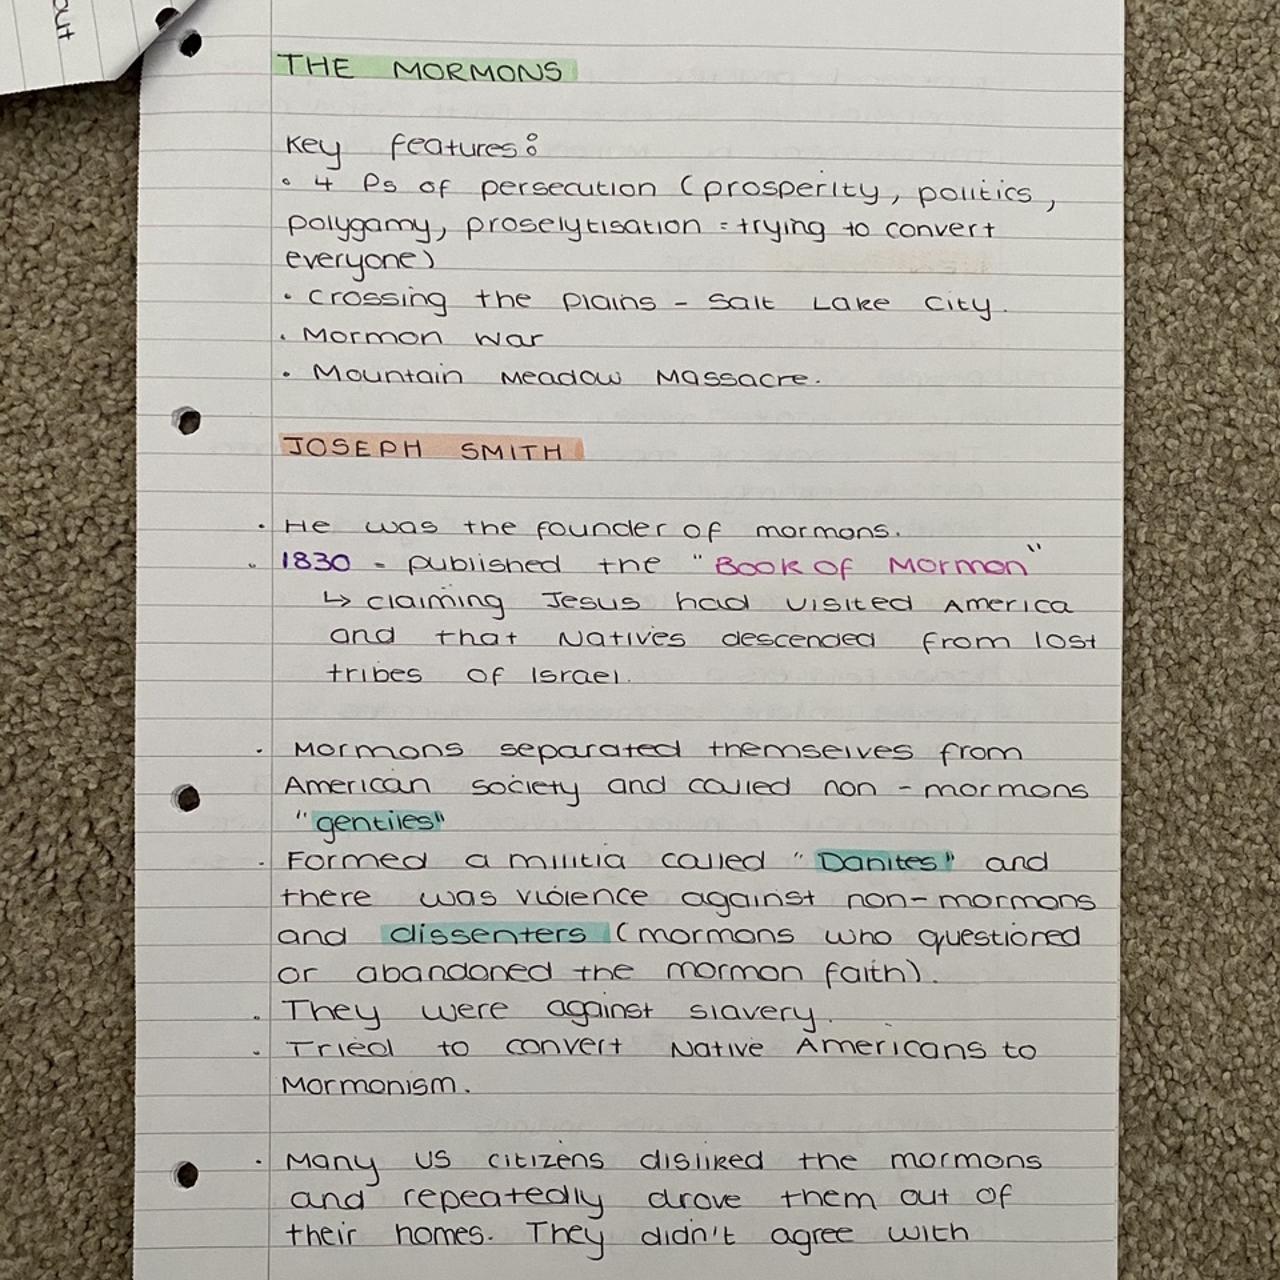 out
THE MORMONS
Key features:
• 4 Ps of persecution (prosperity, politics,
polygamy, proselytisation = trying to convert
everyone)
• Crossing the plains - Salt Lake City.
• Mormon war
• Mountain Meadow Massacre.
JOSEPH SMITH
• He was the founder of mormons.
• 1830 - published the "Book of Mormon"
↳ claiming Jesus had visited America
and that Natives descended from lost
tribes of Israel.
• Mormons separated themselves from
American society and called non-mormons
"gentiles"
• Formed a militia called "Danites" and
there was violence against non-mormons
and dissenters (mormons who questioned
or abandoned the mormon faith).
• They were against slavery.
• Tried to convert Native Americans to
Mormonism.
• Many US citizens disliked the mormons
and repeatedly drove them out of
their homes. They didn't agree with